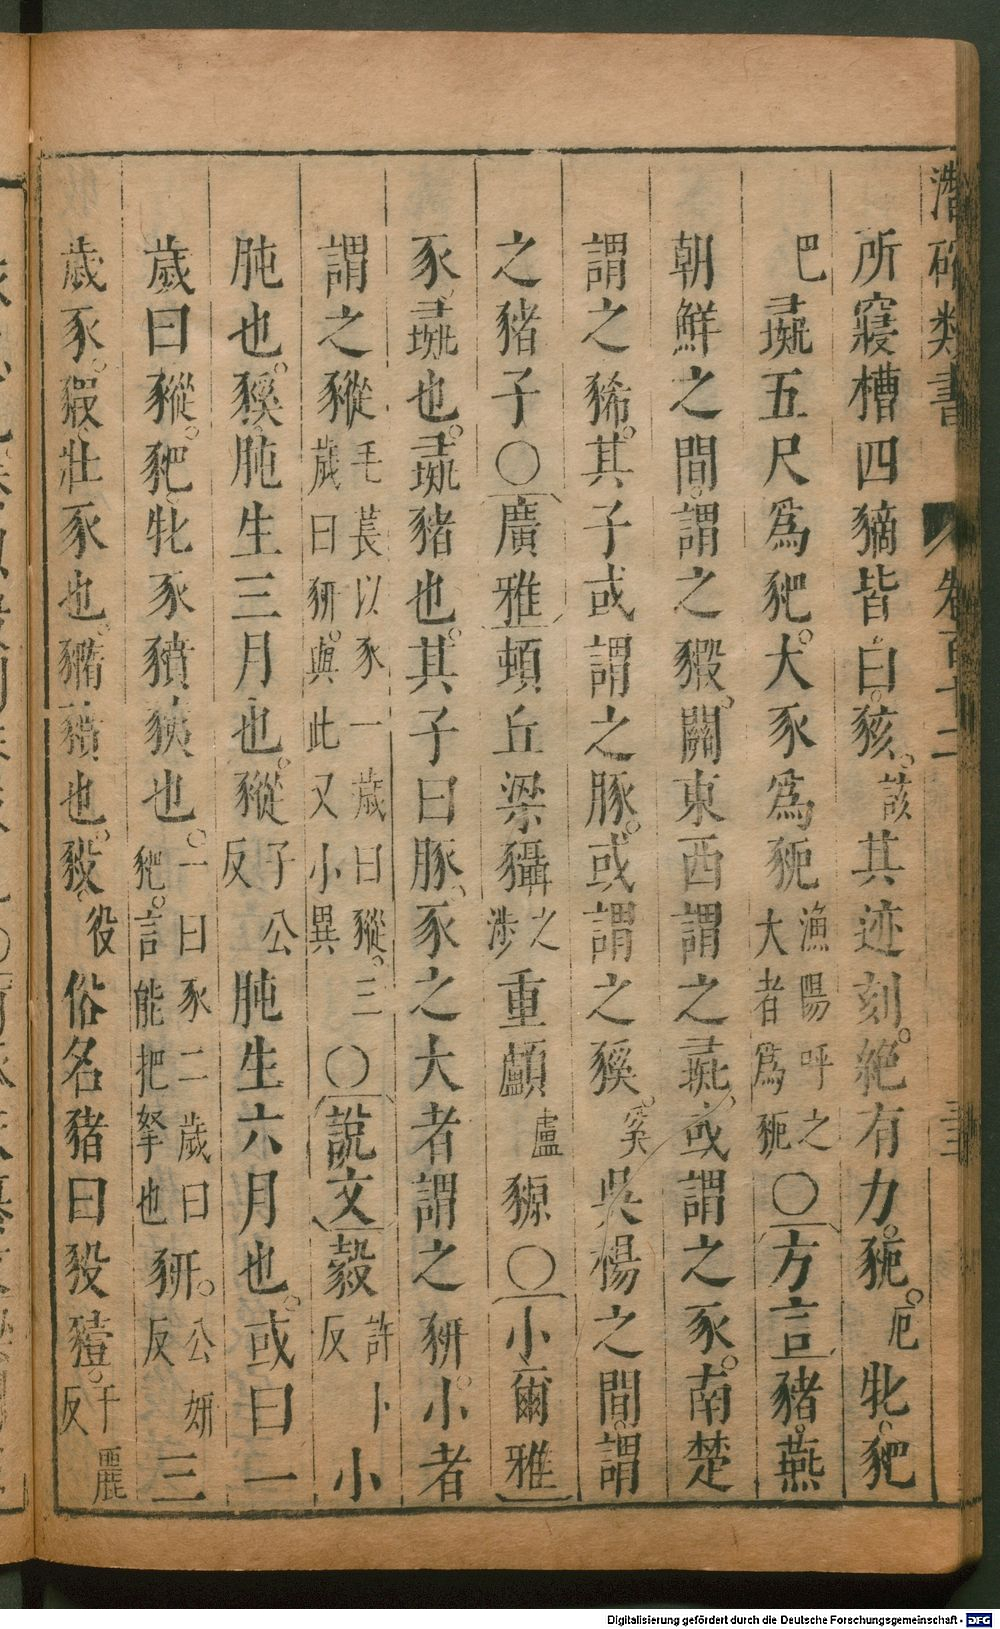 潛確類書 卷百十二 三
所寢槽四豴皆白豥該其迹刻絕有力豟厄牝豝
巴彘五尺爲豝大豕爲豟漁陽呼之大者爲豟〇方言豬燕
朝鮮之間謂之豭關東西謂之彘或謂之豕南楚
謂之豨其子或謂之豚或謂之豯奚吳楊之間謂
之豬子〇廣雅頓丘梁㹎之涉重顱盧豲〇小爾雅
豕彘也彘豬也其子曰豚豕之大者謂之豜小者
謂之豵毛萇以豕一歲曰豵三歲曰豜與此又小異〇說文豰許卜反小
肫也豯肫生三月也豵子公反肫生六月也或曰一
歲曰豵豝牝豕豶㹫也一曰豕二歲曰豝言能把拏也豜公妍反三
歲豕豭壯豕也豶也豛役俗名豬曰豛豷
Digitalisierung gefördert durch die Deutsche Forschungsgemeinschaft - DFG